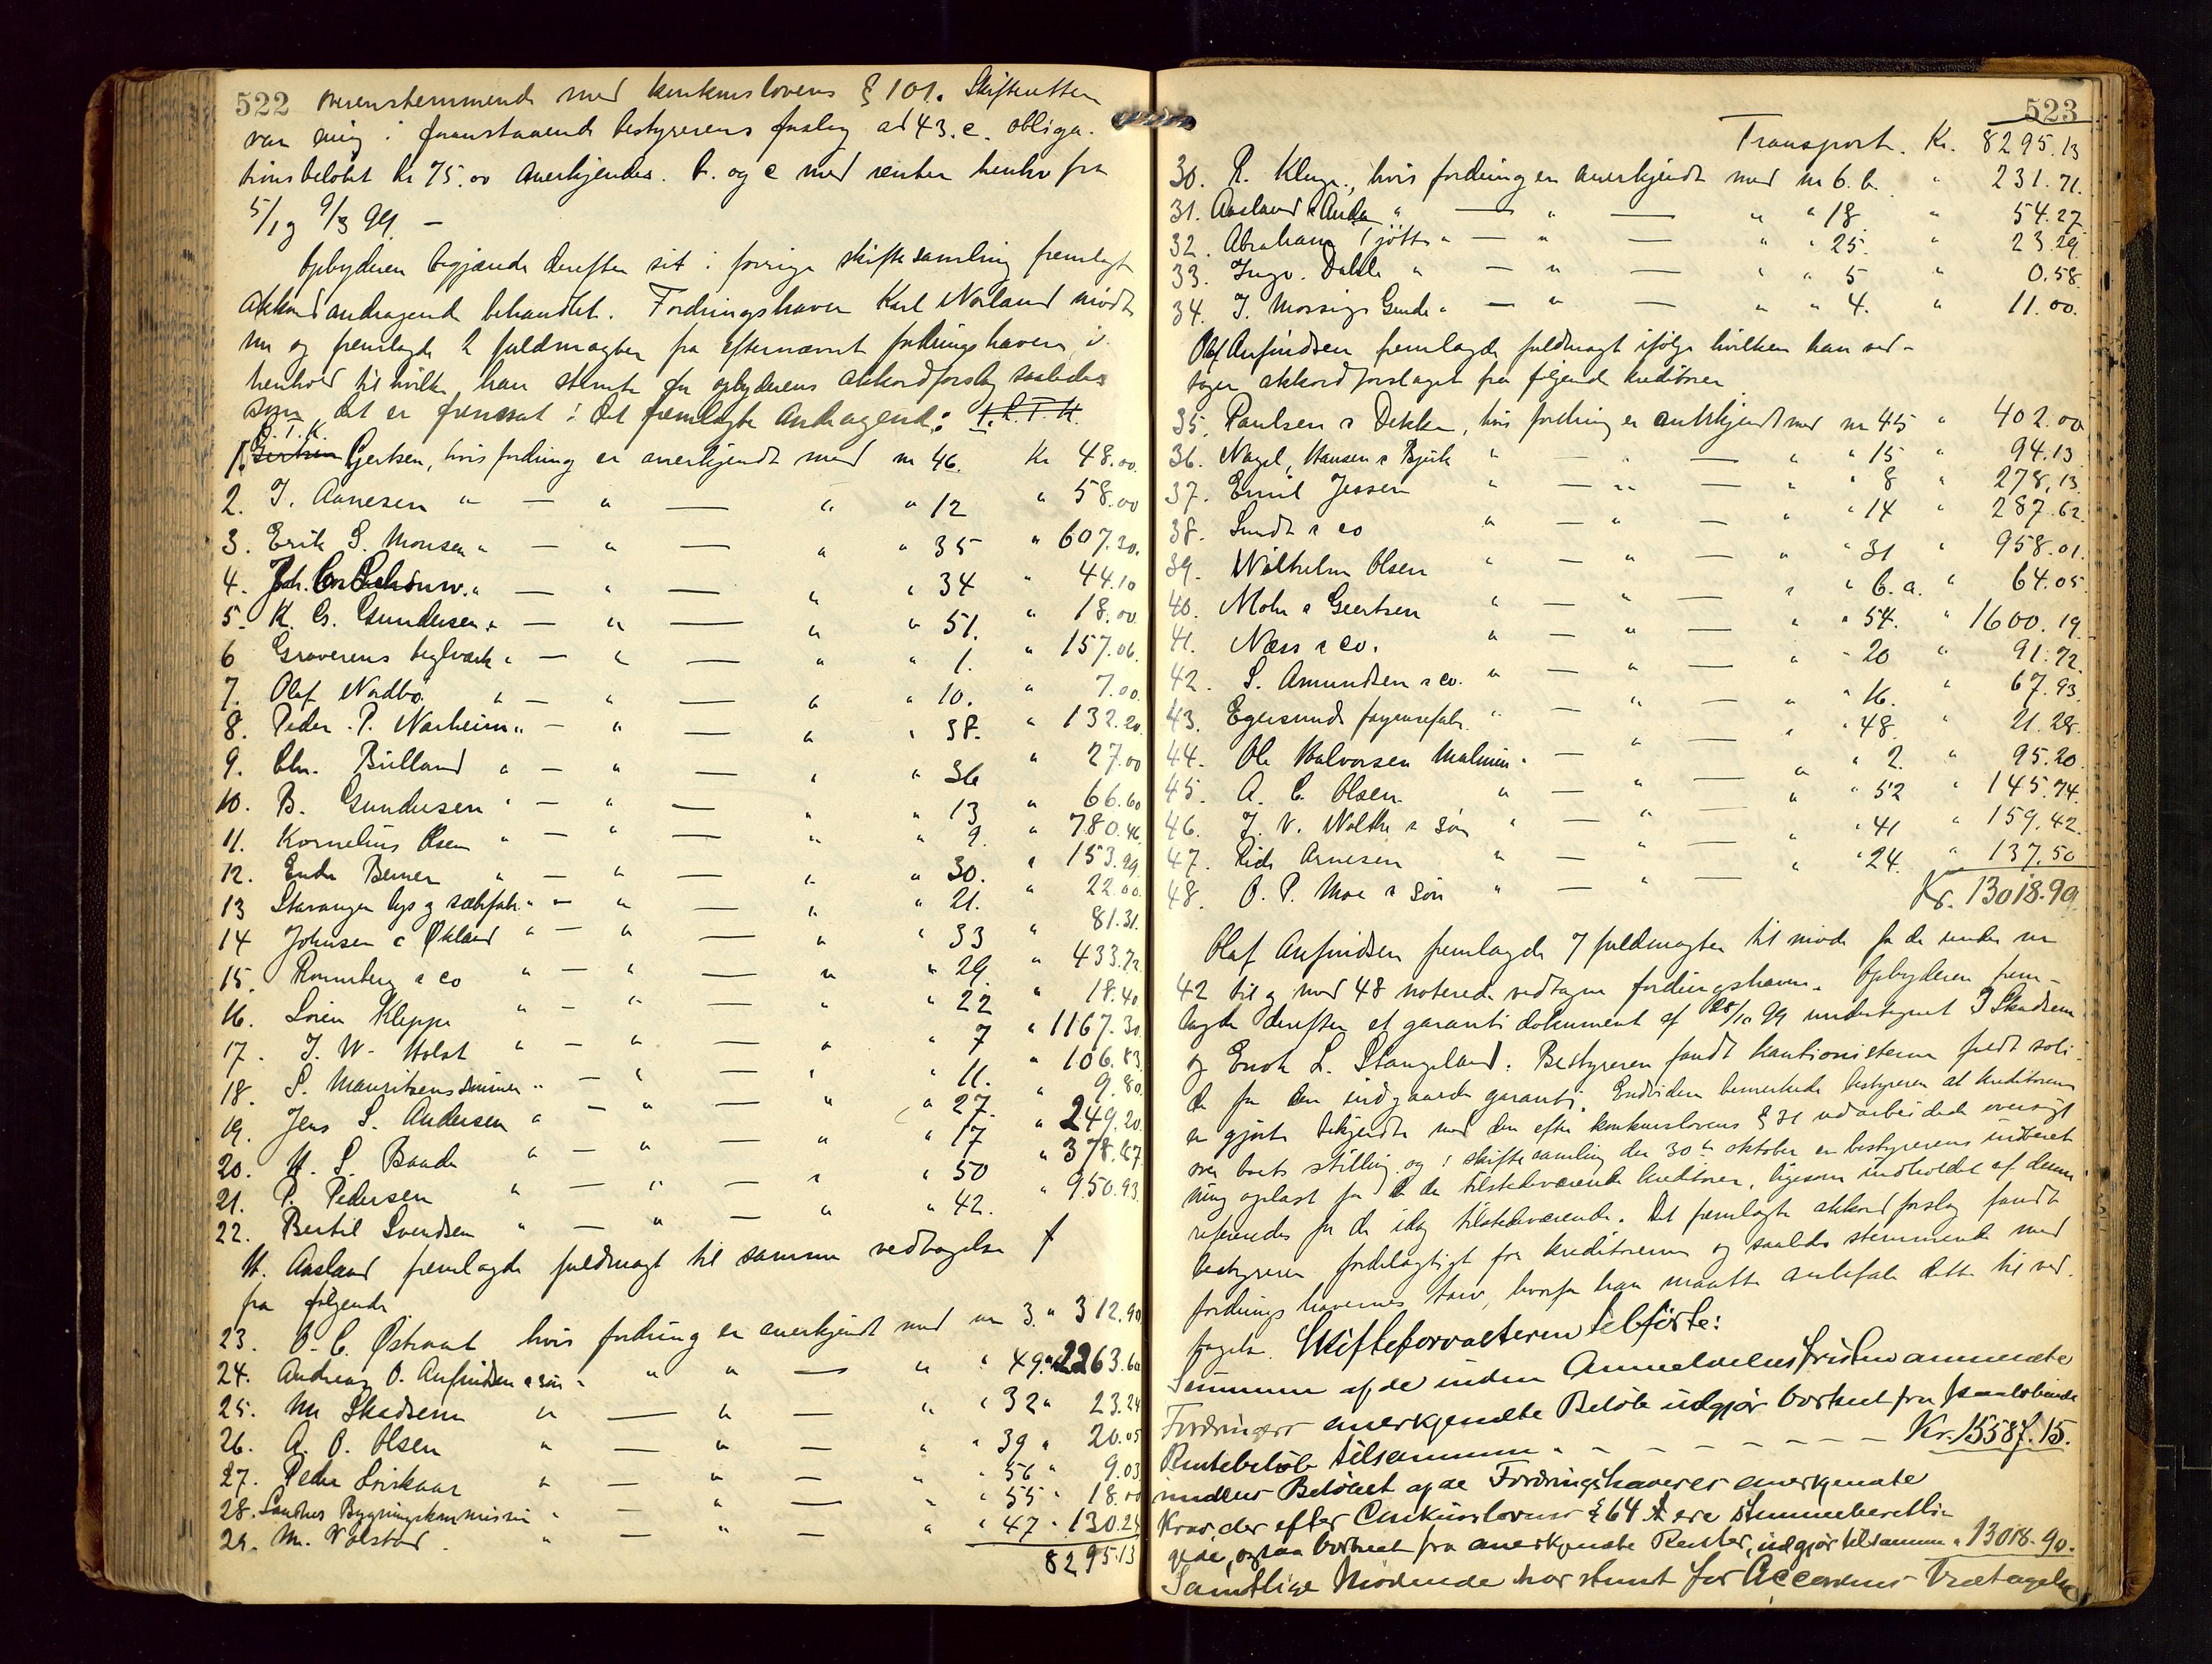 522 overensstemmende med konkurslovens § 101. Skifteretten
var enig i foranstaaende bestyrerens forslag ad 43. c. obliga-
tionsbeløbet kr 75.00 anerkjendes. b. og c med renter henhv fra
5/1 og 9/3 99. —
Opbyderen begjærede derefter sit i forrige skiftesamling fremlagte
akkordandragende behandlet. Fordringshaver Karl Norland mødte
nu og fremlagde 2 fuldmagter fra efternævnte fordringshavere, i
henhold til hvilke han stemte for opbyderens akkordforslag saaledes
som det er fremsat i det fremlagte andragende:
1. Gjertsen, hvis fordring er anerkjendt med nr 46. Kr 48.00
2. T. Aanesen " — " — " " 12 " 58.00
3. Erik S. Monsen " — " — " " 35 " 607.30.
4. Joh. " — " — " " 34 " 44.10
5. K. G. Gundersen " — " — " " 51. " 18.00
6 Graverens teglværk " — " — " " 1. " 157.06.
7. Olaf Nordbø " — " — " " 10. " 7.00
8. Peder P. Narheim " — " — " " 38. " 132.20
9. Chr. Billand " — " — " " 36 " 27.00
10. B. Gundersen " — " — " " 13 " 66.60
11. Kornelius Olsen " — " — " " 9. " 780.46
12. Endr Berner " — " — " " 30. " 153.99
13 Stavanger lys og sæbefabr. " — " — " " 21. " 22.00.
14 Johnsen & Økland " — " — " " 33 " 81.31.
15. Rønneberg & co " — " — " " 29. " 433.72
16. Sören Kleppe " — " — " " 22 " 18.40
17. T. W. Holst " — " — " " 7 " 1167.30
18. S. Mauritzens " — " — " " 11. " 106.83
19. Jens S. Andersen " — " — " " 27. " 9.80
20. H. S. Baade " — " — " " 17 " 249.20
21. P. Pedersen " — " — " " 50 " 378.47
22. Bertil Svendsen " — " — " " 42. " 950.93.
H. Aasland fremlagde fuldmagt til samme vedtagelse
fra følgende
23. O. C. Østraat hvis fordring er anerkjendt med nr 3. " 312.90
24. Andreas O. Anfindsen & søn " " " — " " 49. " 2263.60
25. M. Skadsem " — " — " " 32 " 23.24
26. A. O. Olsen " — " — " " 39 " 20.05
27. Peder " — " — " " 56 " 9.03
28. Sandnes Bygningskommission " — " — " " 55 " 18.00
29. M. Volstad. " — " — " " 47 " 130.24
8295.13
523
Transport. Kr. 8295.13
30. R. Kluge, hvis fordring er anerkjendt med nr 6. b. " 231.71.
31. Aasland & Anda " — " — " " 18. " 54.27
32. Abraham Tjøtta " — " — " " 25. " 23.29.
33. Ingv. Dahle " — " — " " 5 " 0.58.
34. T. " — " — " " 4. " 11.00.
Olaf Anfindsen fremlagde fuldmagt ifølge hvilken han ved-
tager akkordforslaget fra følgende kreditorer
35. Paulsen & Dekke, hvis fordring er anerkjendt med nr 45 " 402.00
36. Nagel, Hansen & Bjerk " — " — " " 15 " 94.13
37. Emil Jessen " — " — " " 8 " 278.13.
38. Sundt & co " — " — " " 14 " 287.62.
39. Wilhelm Olsen " — " — " " 31 " 958.01.
40. Mohr & Geertsen " — " — " " 6. a. " 64.05
41. Næss & co. " — " — " " 54. " 1600.19.
42. S. Amundsen & co. " — " — " " 20 " 91.72.
43. Egersunds fayencefabr. " — " — " " 16. " 67.93.
44. Ole Halvorsen Malmin " — " — " " 48. " 21.28.
45. A. C. Olsen. " — " — " " 2. " 95.20.
46. J. V. & søn " — " — " " 52 " 145.74.
47. Arnesen " — " — " " 41 " 159.42.
48. O. P. Moe & søn " — " — " " 24. " 137.50
Kr. 13018.90.
Olaf Anfindsen fremlagde 7 fuldmagter til møde for de under nr
42 til og med 48 noterede vedtagne fordringshavere. Opbyderen frem-
lagde derefter et garantidokument af 28/10 99 undertegnet J Skadsem
og Enok L. Stangeland. Bestyreren fandt kautionisterne fuldt soli-
de for den indgaaede garanti. Endvidere bemerkede bestyreren at kreditorerne
er gjort bekjendte med den efter konkurslovens § 31 udarbeidede oversigt
over boets stilling og i skiftesamling den 30te oktober er bestyrerens indberet-
ning oplæst for de da tilstedeværende kreditorer, ligesom indholdet af denne
refereredes for de idag tilstedeværende. Det fremlagte akkordforslag fandt
bestyreren fordelagtigt for kreditorerne og saaledes stemmende med
fordringshavernes tarv, hvorfor han maatte anbefale dette til ved-
tagelse. Skifteforvalteren tilførte:
Summen af de inden Anmeldelsesfristen anmeldte
Fordringers anerkjendte Beløb udgjør bortseet fra paaløbende
Rentebeløb tilsammen - - - - - - - Kr. 15587.15.
medens Beløbet af de Fordringshaveres anerkjendte
Krav, der efter Konkurslovens § 64 ere stemmeberetti-
gede, ogsaa bortseet fra anerkjendte Renter, udgjør tilsammen " 13018.90.
Samtlige Mødende har stemt for Accordens Vedtagelse